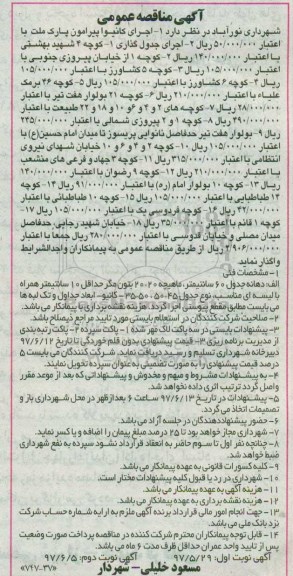 آگهی مناقصه عمومی
شهرداری نورآباد در نظر دارد ۱-اجرای کانیوا پیرامون پارک ملت با
اعتبار ۵۰/۰۰۰/۰۰۰ ریال ۲- اجرای جدول گذاری ۱- کوچه ۴ شهید بهشتی
با اعتبار ۱۴۰/۰۰۰/۰۰۰ ریال ۲- کوچه ۱ از خیابان پیروزی جنوبی با
اعتبار ۱۰۵/۰۰۰/۰۰۰ ریال ۳- کوچه ۵ کشاورز با اعتبار ۱۰۵/۰۰۰/۰۰۰
ریال ۴- کوچه ۶ کشاورز با اعتبار ۱۰۵/۰۰۰/۰۰۰ ریال ۵- کوچه ۴۶ برمک
علیاء با اعتبار ۲۱۰/۰۰۰/۰۰۰ ریال ۶- کوچه ۲۱ بلوار هفت تیر با اعتبار
۲۸/۰۰۰/۰۰۰ ریال ۷- کوچه های ۲ و ۴ و ۶ و ۱۰ و ۱۸ و ۲۲ طبیعت با اعتبار
۴۹۰/۰۰۰/۰۰۰ ریال ۸- کوچه ۱ و ۲ پیروزی شمالی با اعتبار ۲۴۵/۰۰۰/۰۰۰
ریال ۹- بلوار هفت تیر حدفاصل نانوایی پریسوز تا میدان امام حسین(ع) با
اعتبار ۲۱۰/۰۰۰/۰۰۰ ریال ۱۰- کوچه ۲ و ۴ و ۶ و ۱۰ خیابان شهدای نیروی
انتظامی با اعتبار ۳۱۵/۰۰۰/۰۰۰ ریال ۱۱- کوچه ۳ جهاد و فرعی های منشعب
با اعتبار ۲۱۰/۰۰۰/۰۰۰ ریال ۱۲- کوچه ۹ رضوان با اعتبار ۱۴۰/۰۰۰/۰۰۰
ریال ۱۳- کوچه ۱۰ بولوار امام (ره) با اعتبار ۹۱/۰۰۰/۰۰۰ ریال ۱۴- کوچه
۱۲ طباطبایی با اعتبار ۱۰۵/۰۰۰/۰۰۰ ریال ۱۵- کوچه ۱۰ طباطبایی با اعتبار
۴۲/۰۰۰/۰۰۰ ریال ۱۶- کوچه فردوسی یک با اعتبار ۱۰۵/۰۰۰/۰۰۰ ریال ۱۷-
کوچه ۱ قائم با اعتبار ۳۵/۰۰۰/۰۰۰ ریال ۱۸- خیابان شهید رجایی حدفاصل
میدان مصلی و خیابان قدوسی با اعتبار ۲۸۰/۰۰۰/۰۰۰ ریال جمعا با اعتبار
۲۹۰۶/۰۰۰/۰۰۰ ریال از طریق مناقصه عمومی به پیمانکاران واجدالشرایط
واگذار نماید
۱- مشخصات فنی
الف: دهانه جدول ۶۰ سانتیمتر، ماهیچه ۲۰*۲۰ بتون مگر حداقل ۱۰ سانتیمتر همراه
با لیسه ای مناسب، نوع جدول ۴۵*۵۰*۳۵*۵۵ - کانیو - ابعاد جداول و تک لبه ها
می بایست مطابق مقطع پیوستی اجرا گردد. هزینه نقشه برداری با پیمانکار می باشد.
۲- صلاحیت شرکت کنندگان در استعلام بایستی مورد تایید مراجع ذیصلاح باشد.
۳- پیشنهادات بایستی در سه پاکت لاک مهر شده ۱- پاکت سپرده ۲- پاکت رتبه بندی
از مدیریت برنامه ریزی ۳- قیمت پیشنهادی بدون قلم خوردگی تا تاریخ ۹۷/۶/۱۲ به
دبیرخانه شهرداری تسلیم و رسید دریافت نماید. شرکت کنندگان می بایست ۵
درصد قیمت پیشنهادی را به صورت تضمینی به عنوان سپرده تحویل نمایند.
۴- به پیشنهادات مشروط و مبهم و مخدوش و پیشنهاداتی که بعد از موعد مقرر
واصل گردد ترتیب اثری داده نخواهد شد.
۵- پیشنهادات در تاریخ ۹۷/۶/۱۳ ساعت ۶ بعدازظهر در محل شهرداری باز و
تصمیمات اتخاذ می گردد.
۶- حضور پیشنهاددهندگان در جلسه آزاد می باشد.
۷- شهرداری مجاز خواهد بود تا ۲۵ درصد مبلغ پیمان را اضافه و یا کسر نماید.
۸- چنانچه نفر اول تا سوم حاضر به انعقاد قرارداد نشود سپرده به نفع شهرداری
ضبط خواهد شد.
۹- کلیه کسورات قانونی به عهده پیمانکار می باشد.
۱۰- شهرداری در رد یا قبول کلیه پیشنهادات مختار است.
۱۱- هزینه آگهی به عهده پیمانکار می باشد.
۱۲- هزینه نقشه برداری به عهده پیمانکار می باشد.
۱۳- جهت انجام امور مالی قرارداد برنده آگهی ملزم به ارایه شماره حساب شرکت
نزد بانک ملی می باشد.
۱۴- قابل توجه پیمانکاران محترم شرکت کننده در مناقصه پرداخت صورت وضعیت
پس از تایید واحد عمران حداقل ظرف مدت ۶ ماه می باشد.
آگهی نوبت اول: ۹۷/۵/۲۹ آگهی نوبت دوم: ۹۷/۶/۵
مسعود خلیلی - شهردار «۷۴۷-۳۷»